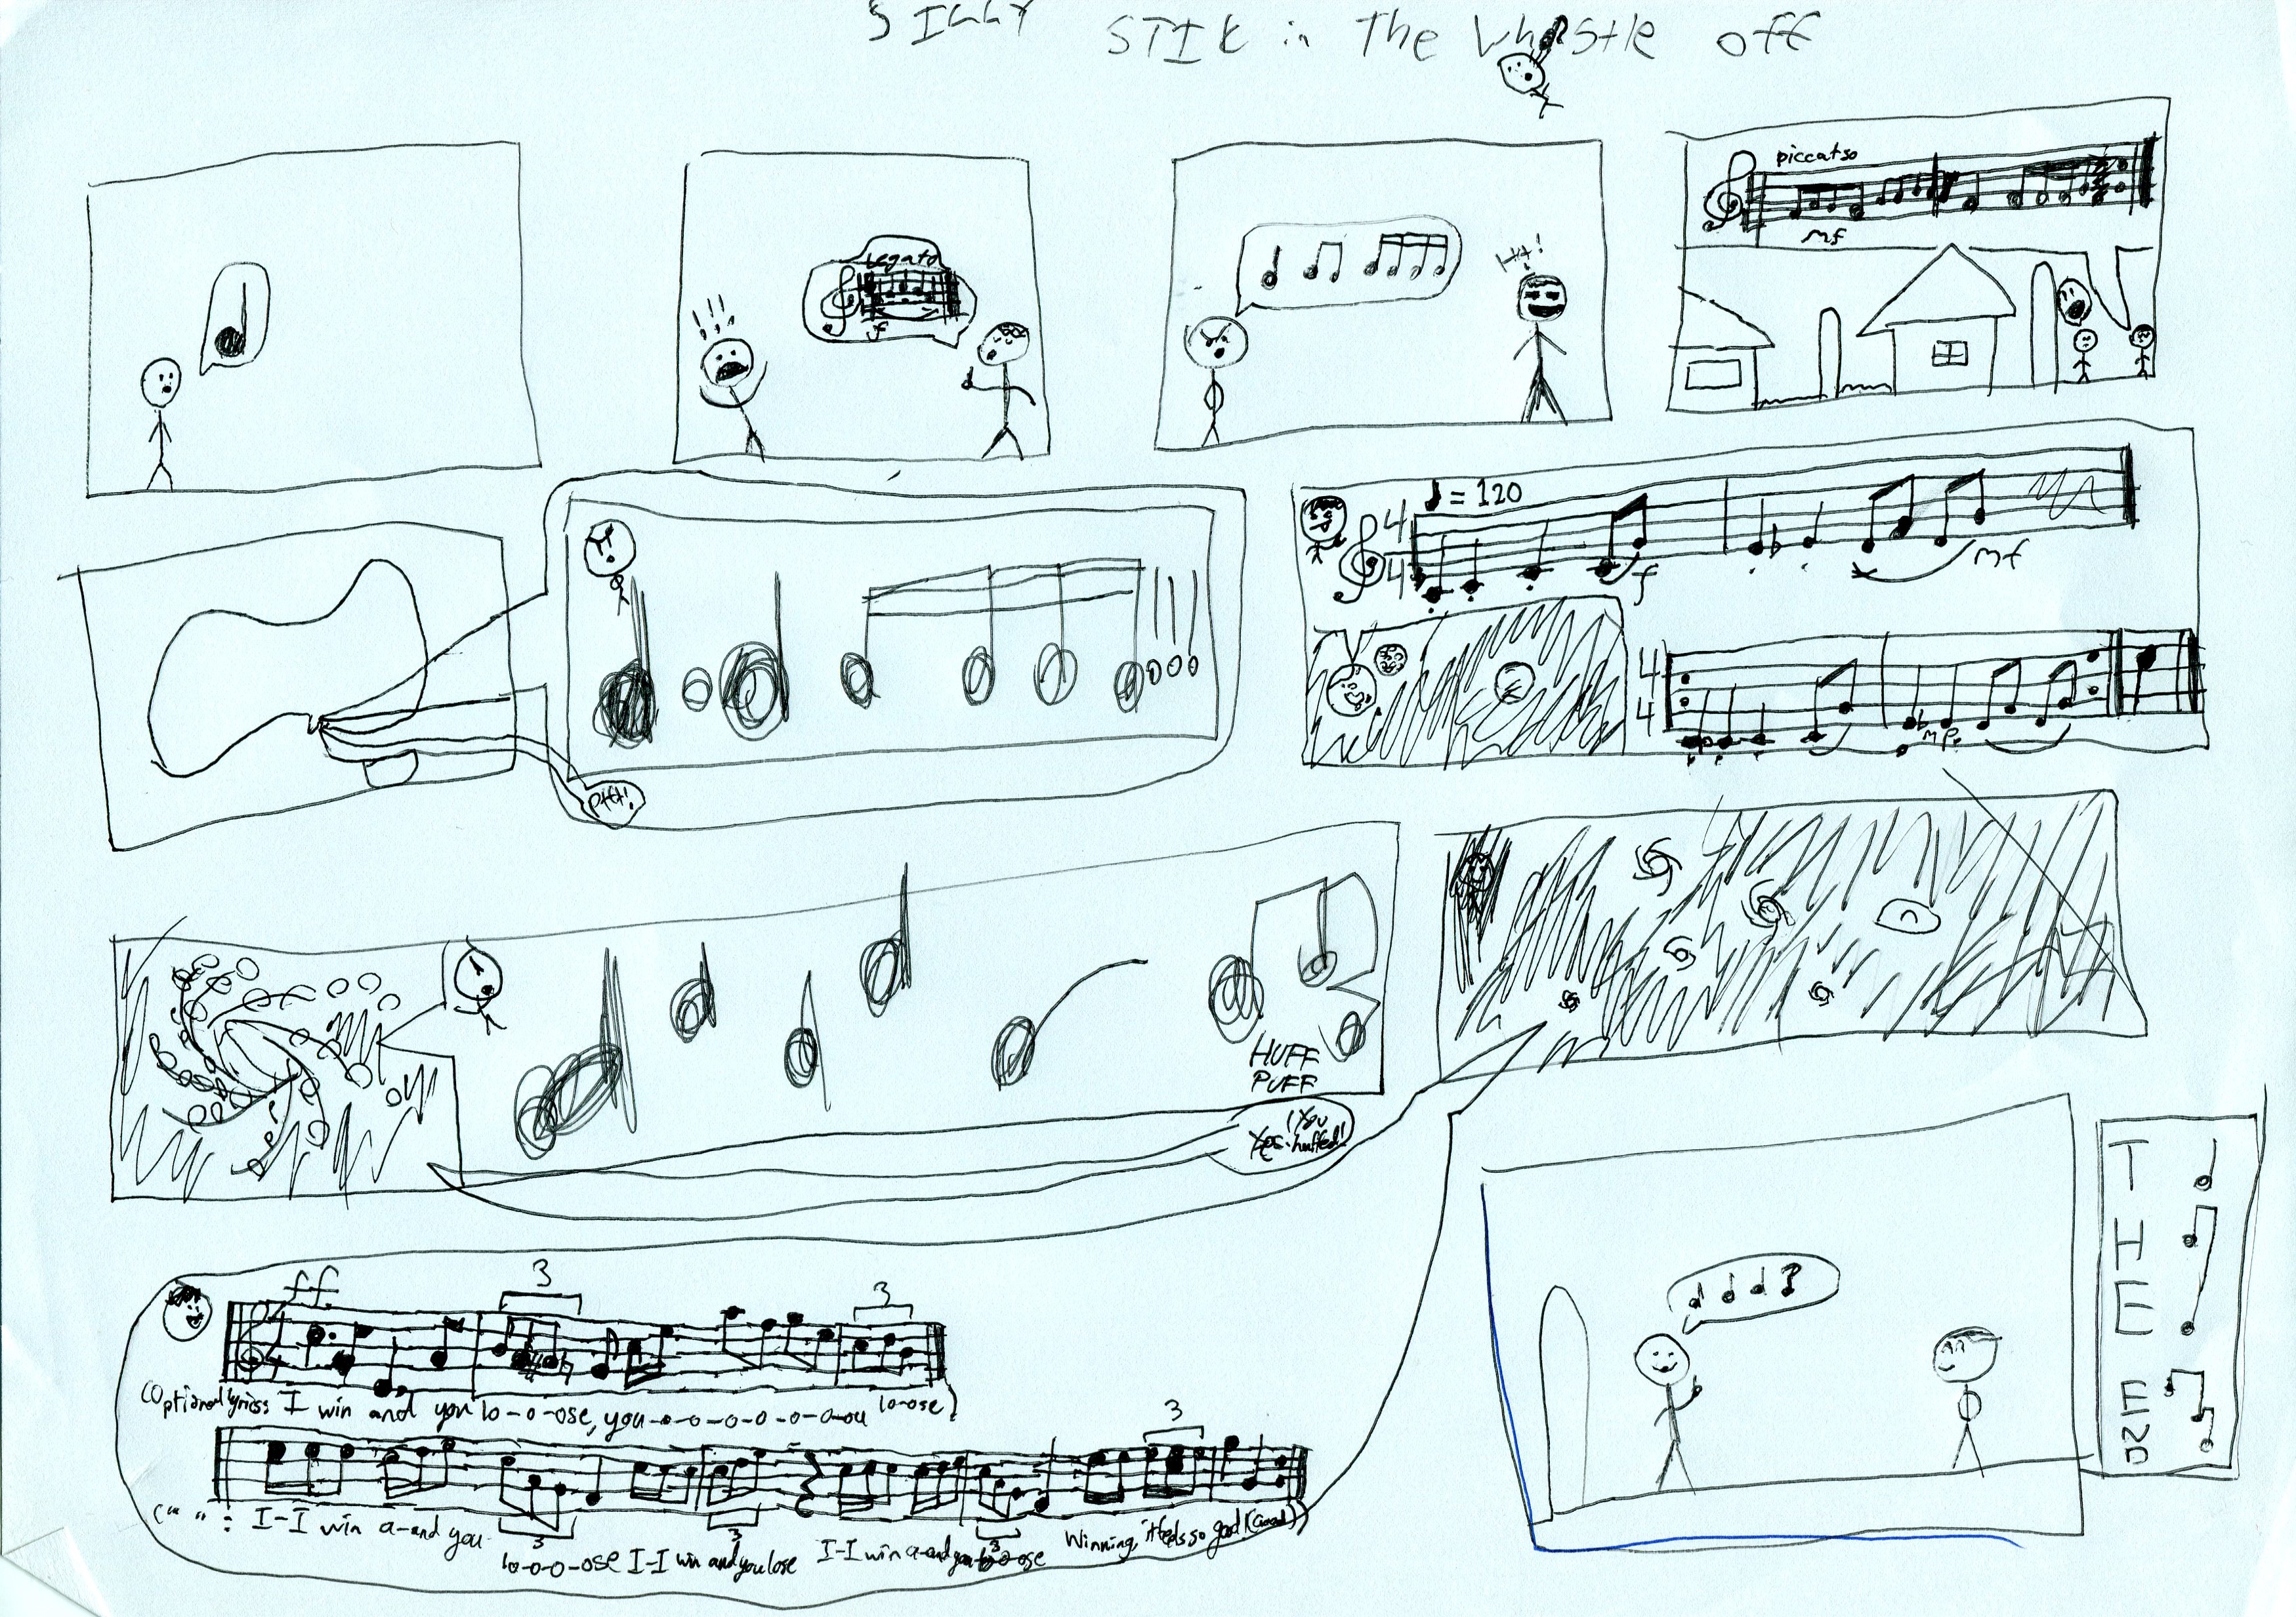 SILLY STIK in The Whistle off
legato
f
!!!
HA!
piccatso
mf
Pfft!
!!!
♩ = 120
4
4
f
mf
4
4
mp
HUFF
PUFF
You
huffed!
ff
3
3
(Optional lyrics: I win and you lo-o-ose, you-o-o-o-o-o-o-ou lo-ose)
3
(" " : I-I win a-and you lo-o-o-ose I-I win and you lose I-I win a-and you lo-o-ose Winning, it feels so good (Good))
3
3
3
THE
END